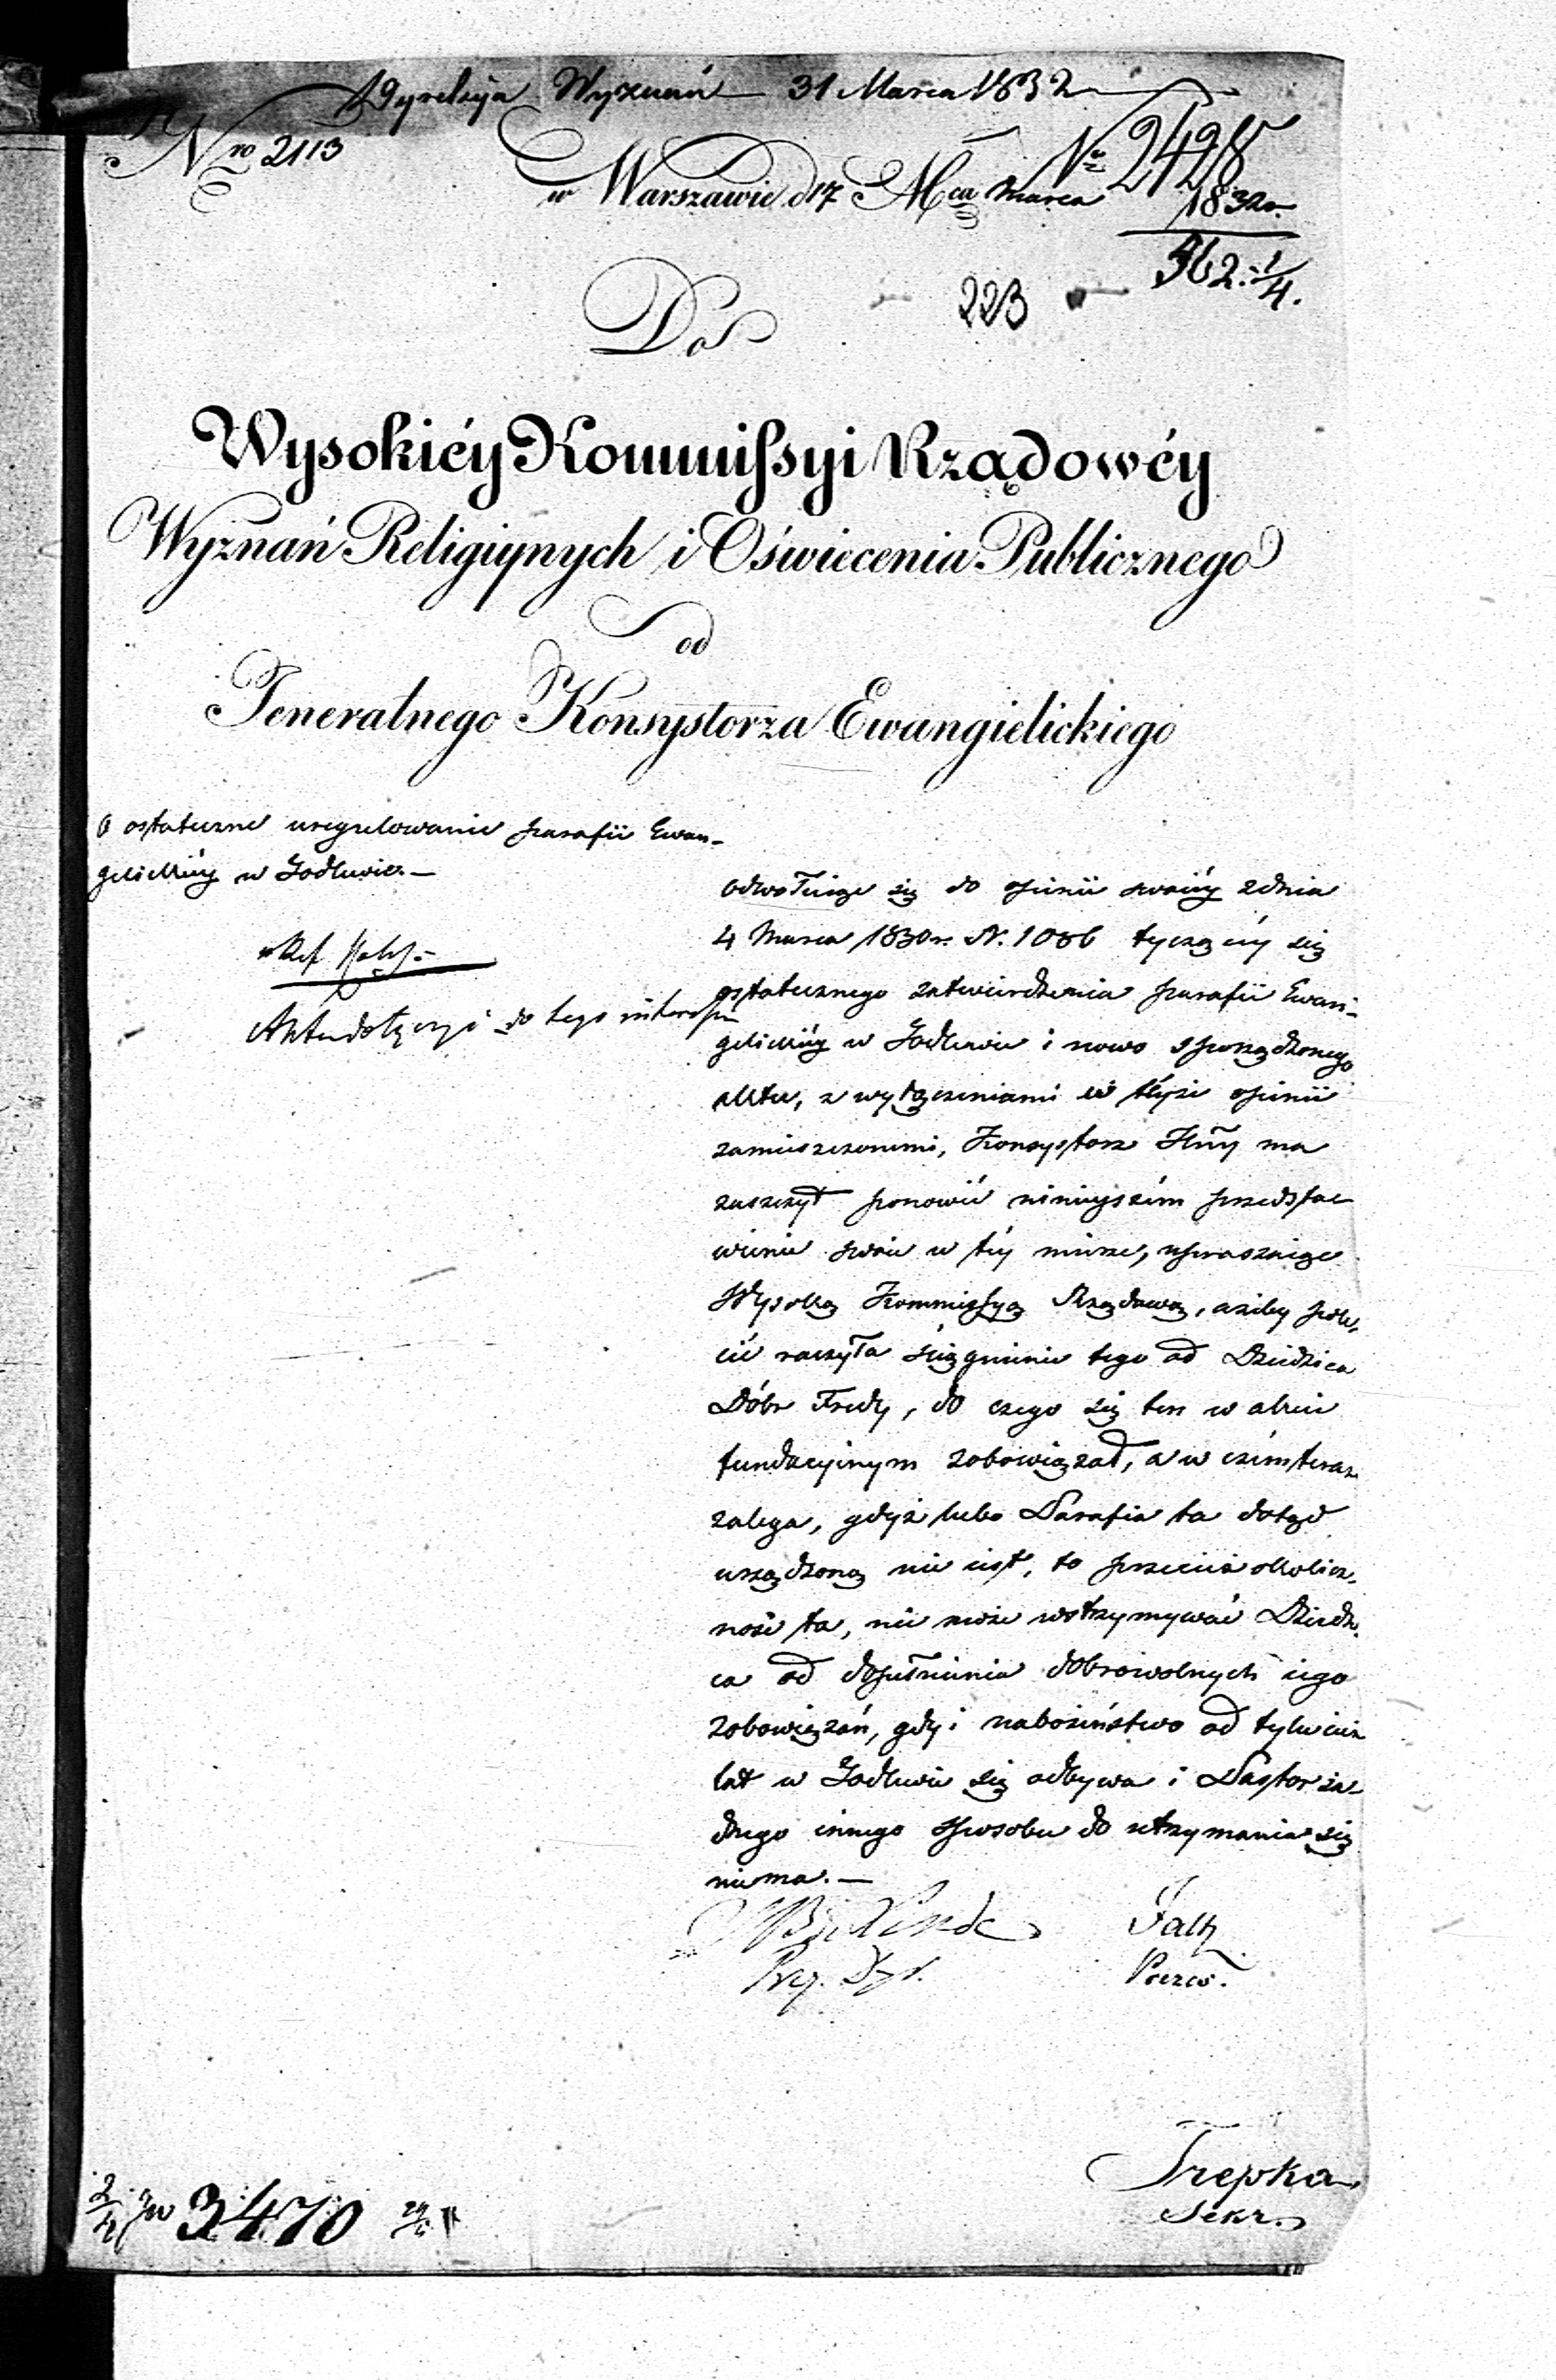 Dyrekcya Wyznań 31 Marca 1832
Nro 2113
No 2428
w Warszawie d 17 Mca Marca 1832 r.
562. 1/4.
223
Do
Wysokiéy Kommissyi Rządowéy
Wyznań Religiynych i Oświecenia Publicznego
od
Jeneralnego Konsystorza Ewangielickiego
O ostateczne uregulowanie parafii Ewan-
gelickiéy w Godlewie.—
Ref
Akta dołączyć do tego interessu
Odwołuiąc się do opinii swoiéy z dnia
4 Marca 1830 r. N. 1086 tyczącéy się
ostatecznego zatwierdzenia parafii Ewan-
gelickiéy w Godlewie i nowo sporządzonego
aktu, z wyłączeniami w téyże opinii
zamieszczonemi, Konsystorz Jlny ma
zaszczyt ponowić ninieyszém przedsta-
wienie swoie w téy mierze, upraszaiąc
Wysoką Kommissyą Rządową, ażeby pole-
cić raczyła ściągnienie tego od Dziedzica
Dóbr Fredy, do czego się ten w akcie
fundacyinym zobowiązał, a w czém teraz
zalega, gdyż lubo Parafia ta dotąd
urządzoną nie iest, to przecież okolicz-
ność ta, nie może wstrzymywać Dziedzi-
ca od dopełnienia dobrowolnych iego
zobowiązań, gdy i nabożeństwo od tylu iuż
lat w Godlewie się odbywa i Pastor ża-
dnego innego sposobu do utrzymania się
niema.—
Linde
Prez. Dyr.
Faltz
Prezes.
Trepka
Sekr.
3470